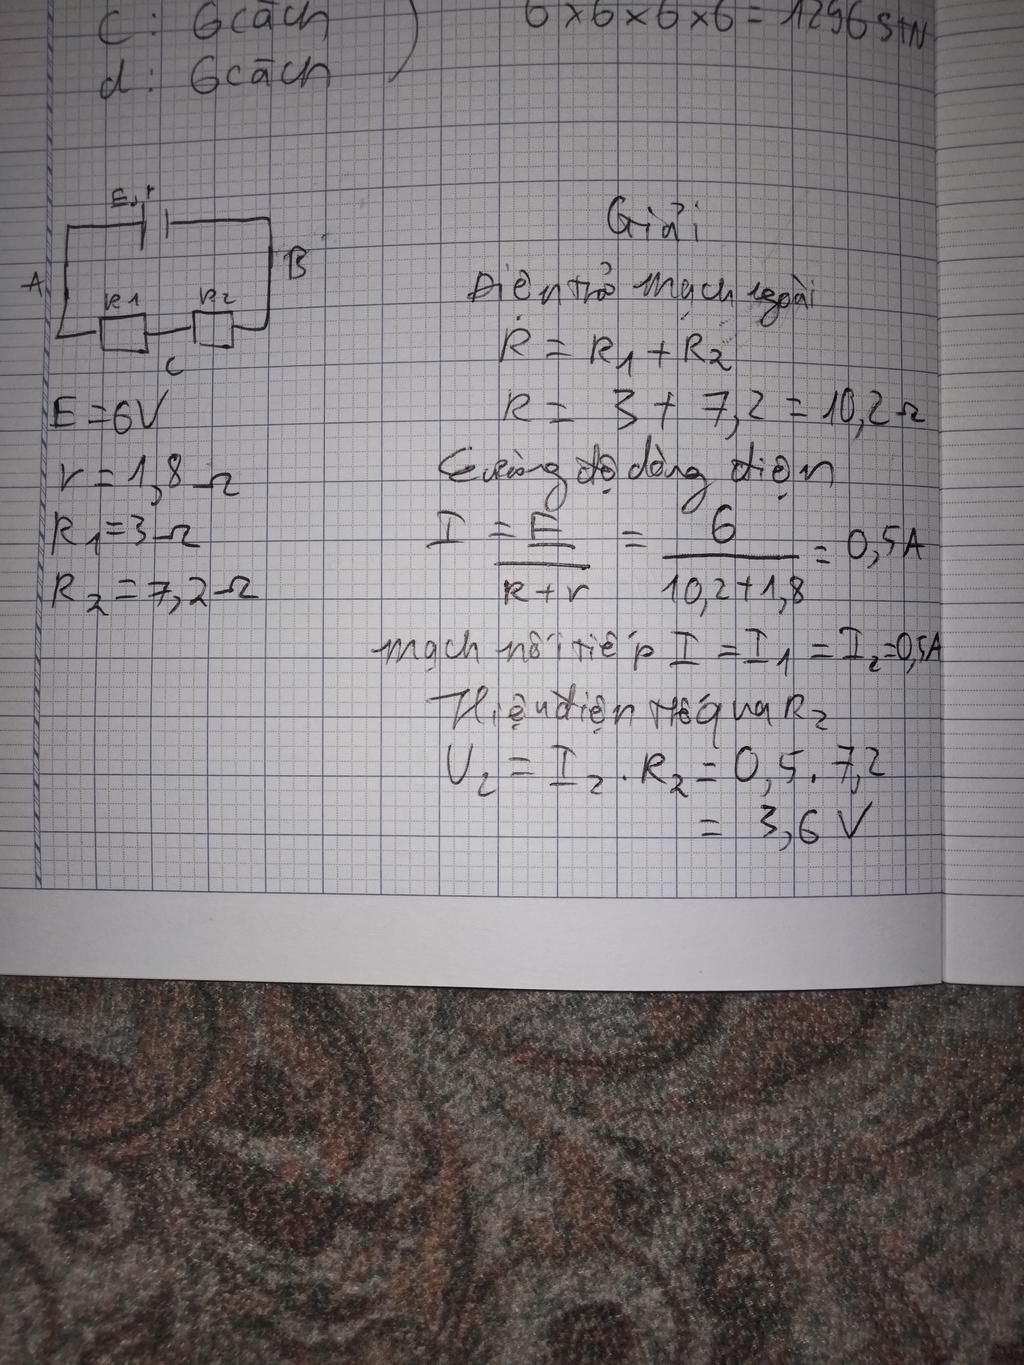 c: 6 cách
d: 6 cách
6 x 6 x 6 x 6 = 1296 STN
E, r
A
B
R1
R2
C
E = 6V
r = 1,8 Ω
R1 = 3 Ω
R2 = 7,2 Ω
Giải
Điện trở mạch ngoài
R = R1 + R2
R = 3 + 7,2 = 10,2 Ω
Cường độ dòng điện
I = E / R + r = 6 / 10,2 + 1,8 = 0,5A
mạch nối tiếp I = I1 = I2 = 0,5A
Hiệu điện thế qua R2
U2 = I2 . R2 = 0,5 . 7,2
= 3,6 V